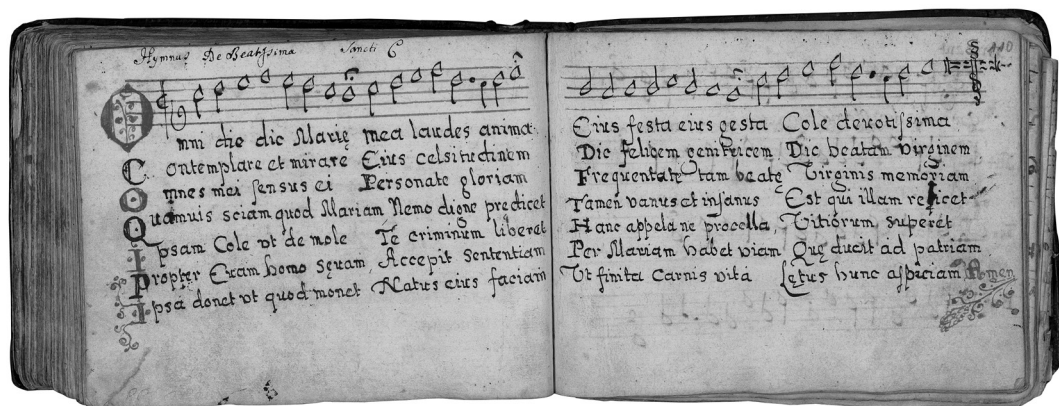 Hymnus De Beatissima Sancti C
110
Omni die dic Marię mea laudes anima
Contemplare et mirare Eius celsitudinem
Omnes mei sensus ei Personate gloriam
Quamuis sciam quod Mariam Nemo digne predicet
Ipsam Cole vt de mole Te criminum liberet
Propter Euam homo sęuam, Accepit Sententiam
Ipsa donet vt quod monet Natus eius faciam
Eius festa eius gesta Cole deuotissima
Dic felicem genitricem Dic beatam virginem
Frequentate tam beatę Virginis memoriam
Tamen vanus et insanus Est qui illam reticet
Hanc appella ne procella Vitiorum superet
Per Mariam habet viam Quę ducit ad patriam
Vt finita Carnis vita Lętus hunc aspiciam Amen